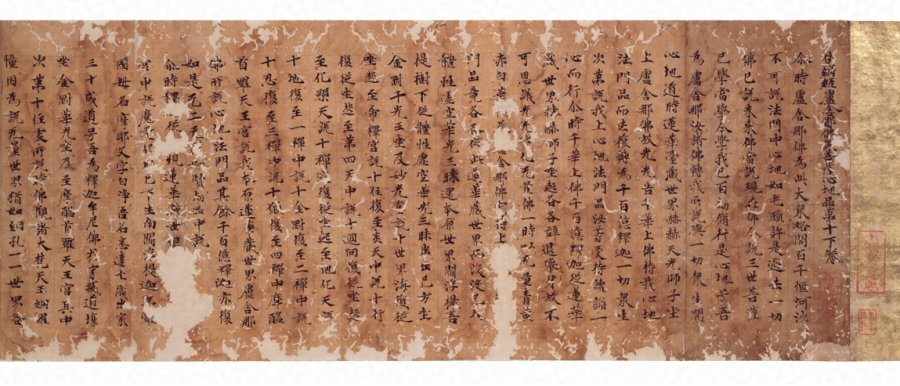 盧舍那佛說菩薩心地品第十下卷
爾時盧舍那佛為此大衆略開百千恒河沙
不可說法門中心地如毛頭許是過去一切
佛已說未來佛當說現在佛今說三世菩薩
已學當學今學我已百劫脩行是心地号吾
為盧舍那汝諸佛轉我所說與一切衆生開
心地道時蓮華臺藏世界赫赫天光師子坐
上盧舍那佛放光光告千華上佛持我心地
法門品而去復轉為千百億釋迦一切衆生
次第說我上心地法門品汝等受持讀誦一
心而行爾時千華上佛千百億釋迦從蓮華
藏世界赫赫師子坐起各各辭退舉身放不
可思議光光化无量佛一時以无量青黃
赤白華舍那佛受持上
門品竟各各從此蓮華藏世界而沒沒已入
體性虛空華光三昧還本原世界閻浮提菩
提樹下從體性虛空華光三昧出出已方坐
金剛千光王坐及妙光堂說十世界海復從
坐起至帝釋宮說十住復至炎天中說十行
復從坐起至第四天中說十迴向復從坐起
至化樂天說十禪定復從坐起至他化天說
十地復至一禪中說十金剛復至二禪中說
十忍復至三禪中說十願復至四禪中摩醯
首羅天王宮說我本原蓮華藏世界盧舍那
佛所說心地法門品其餘千百億釋迦亦復
如是无二无賢劫品中說
爾時釋迦現蓮華藏世界
中說魔受化經已下生南閻浮提迦夷羅
國母名摩耶父字白淨吾名悉達七歲出家
三十成道号吾為釋迦牟尼佛於寂滅道場
坐金剛華光王坐乃至摩醯首羅天王宮其中
次第十住處所說時佛觀諸大梵天王網羅
幢因為說无量世界猶如網孔一一世界各